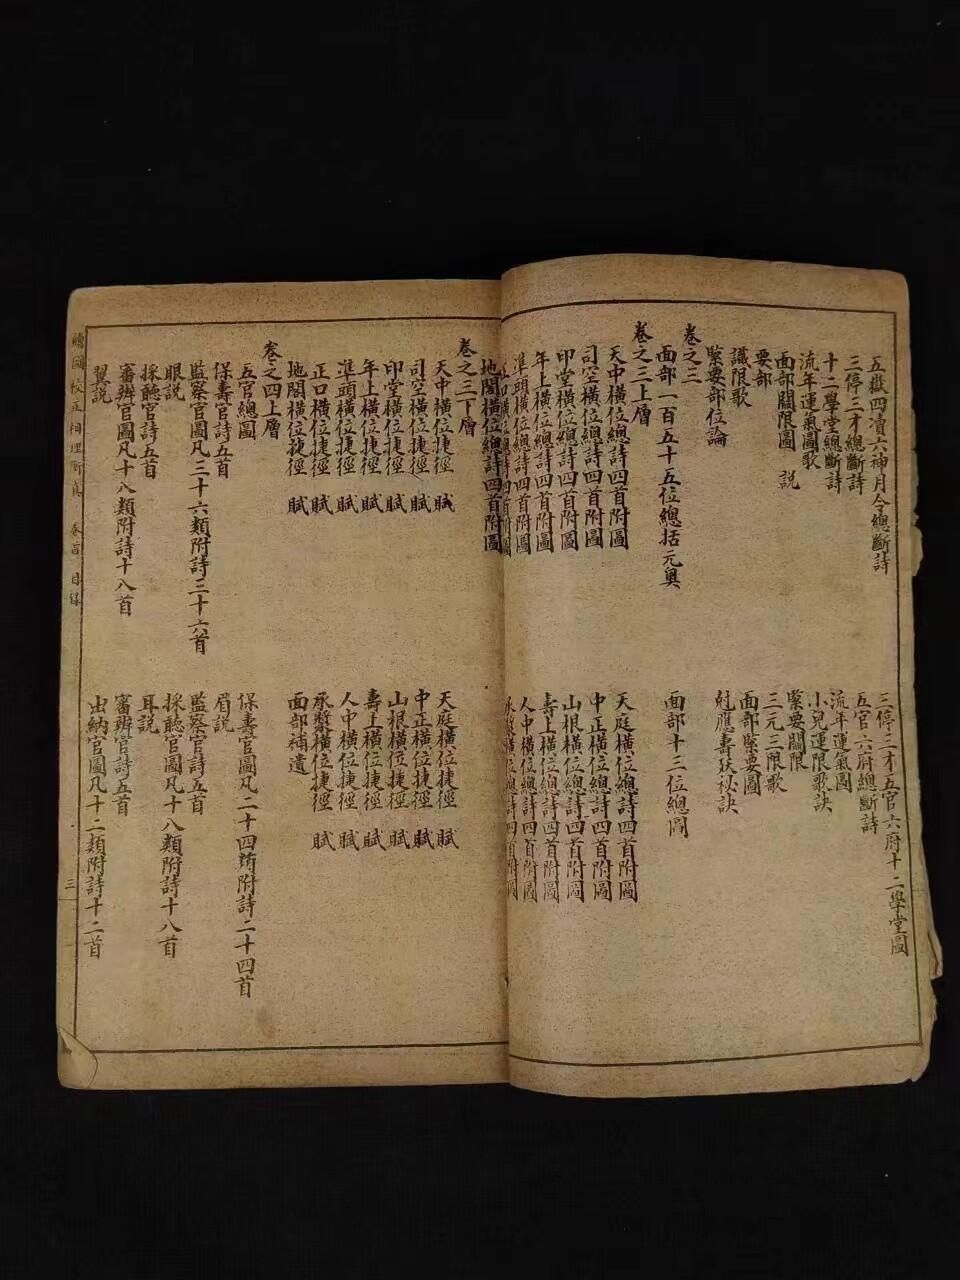 五嶽四瀆六神月令總斷詩
三停三才五官六府十二學堂圖
三停三才總斷詩
五官六府總斷詩
十二學堂總斷詩
流年運氣圖
流年運氣圖歌
小兒運限歌訣
面部關限圖　說
緊要關限
要部
三元三限歌
識限歌
面部緊要圖
緊要部位論
尅應壽夭秘訣
卷之三
面部一百五十五位總括元奧
面部十三位總圖
卷之三上層
天中橫位總詩四首附圖
天庭橫位總詩四首附圖
司空橫位總詩四首附圖
中正橫位總詩四首附圖
印堂橫位總詩四首附圖
山根橫位總詩四首附圖
年上橫位總詩四首附圖
壽上橫位總詩四首附圖
準頭橫位總詩四首附圖
人中橫位總詩四首附圖
正口橫位總詩四首附圖
承漿橫位總詩四首附圖
地閣橫位總詩四首附圖
卷之三下層
天中橫位捷徑　賦
天庭橫位捷徑　賦
司空橫位捷徑　賦
中正橫位捷徑　賦
印堂橫位捷徑　賦
山根橫位捷徑　賦
年上橫位捷徑　賦
壽上橫位捷徑　賦
準頭橫位捷徑　賦
人中橫位捷徑　賦
正口橫位捷徑　賦
承漿橫位捷徑　賦
地閣橫位捷徑　賦
面部補遺
卷之四上層
五官總圖
保壽官圖凡二十四類附詩二十四首
保壽官詩五首
眉説
監察官圖凡三十六類附詩三十六首
監察官詩五首
眼説
採聽官圖凡十八類附詩十八首
採聽官詩五首
耳説
審辨官圖凡十八類附詩十八首
審辨官詩五首
鼻説
出納官圖凡十二類附詩十二首
繪圖校正相理衡真　卷首　目錄　三